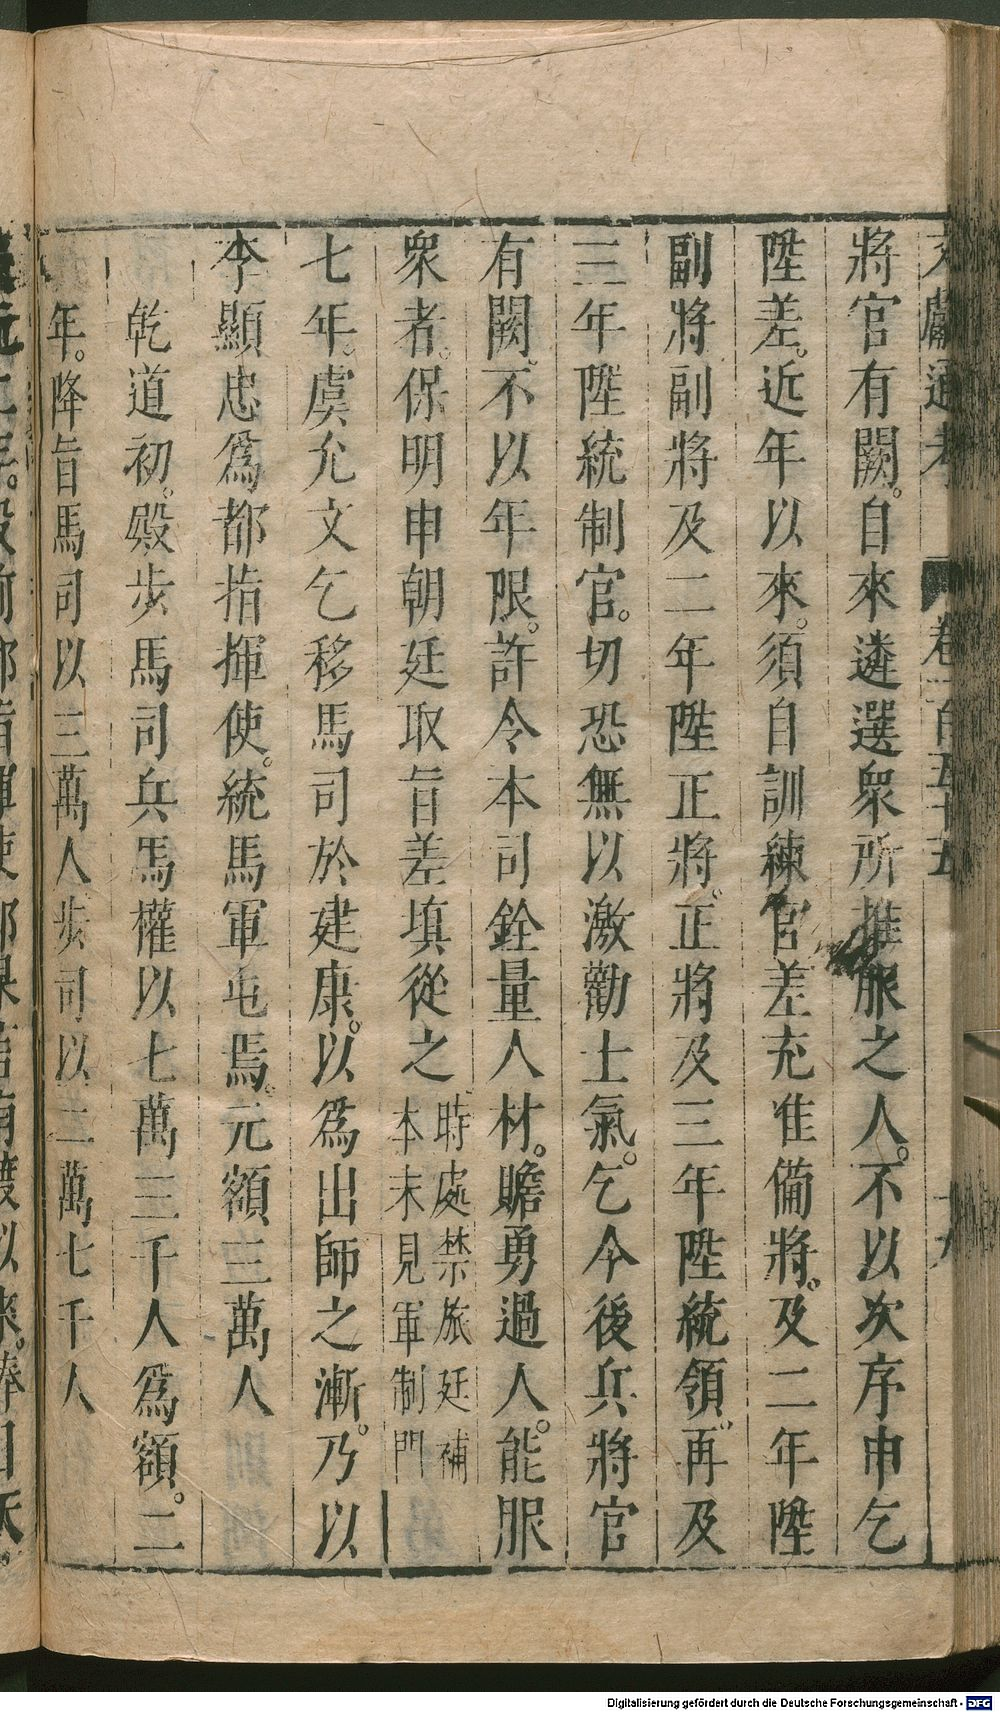 文獻通考 卷一百五十五
將官有闕。自來遴選衆所推服之人。不以次序申乞
陞差。近年以來。須自訓練官差充准備將。及二年陞
副將副將及二年陞正將。正將及三年陞統領。再及
三年陞統制官。切恐無以激勸士氣。乞今後兵將官
有闕。不以年限。許令本司銓量人材。贍勇過人。能服
衆者。保明申朝廷取旨差填從之時處禁旅廷補
本末見軍制門
七年。虞允文乞移馬司於建康。以爲出師之漸。乃以
李顯忠爲都指揮使。統馬軍屯焉。元額三萬人
乾道初。殿步馬司兵馬權以七萬三千人爲額。二
年。降旨馬司以三萬人步司以二萬七千人
Digitalisierung gefördert durch die Deutsche Forschungsgemeinschaft - DFG